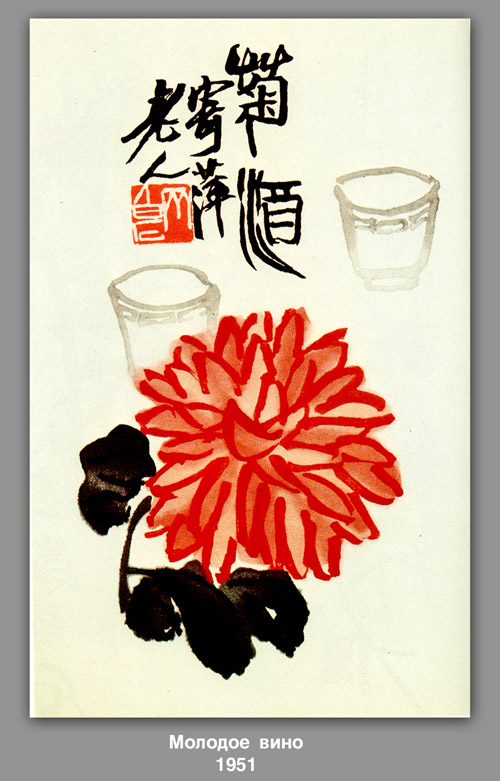 菊酒
寄萍
老人
Молодое вино
1951